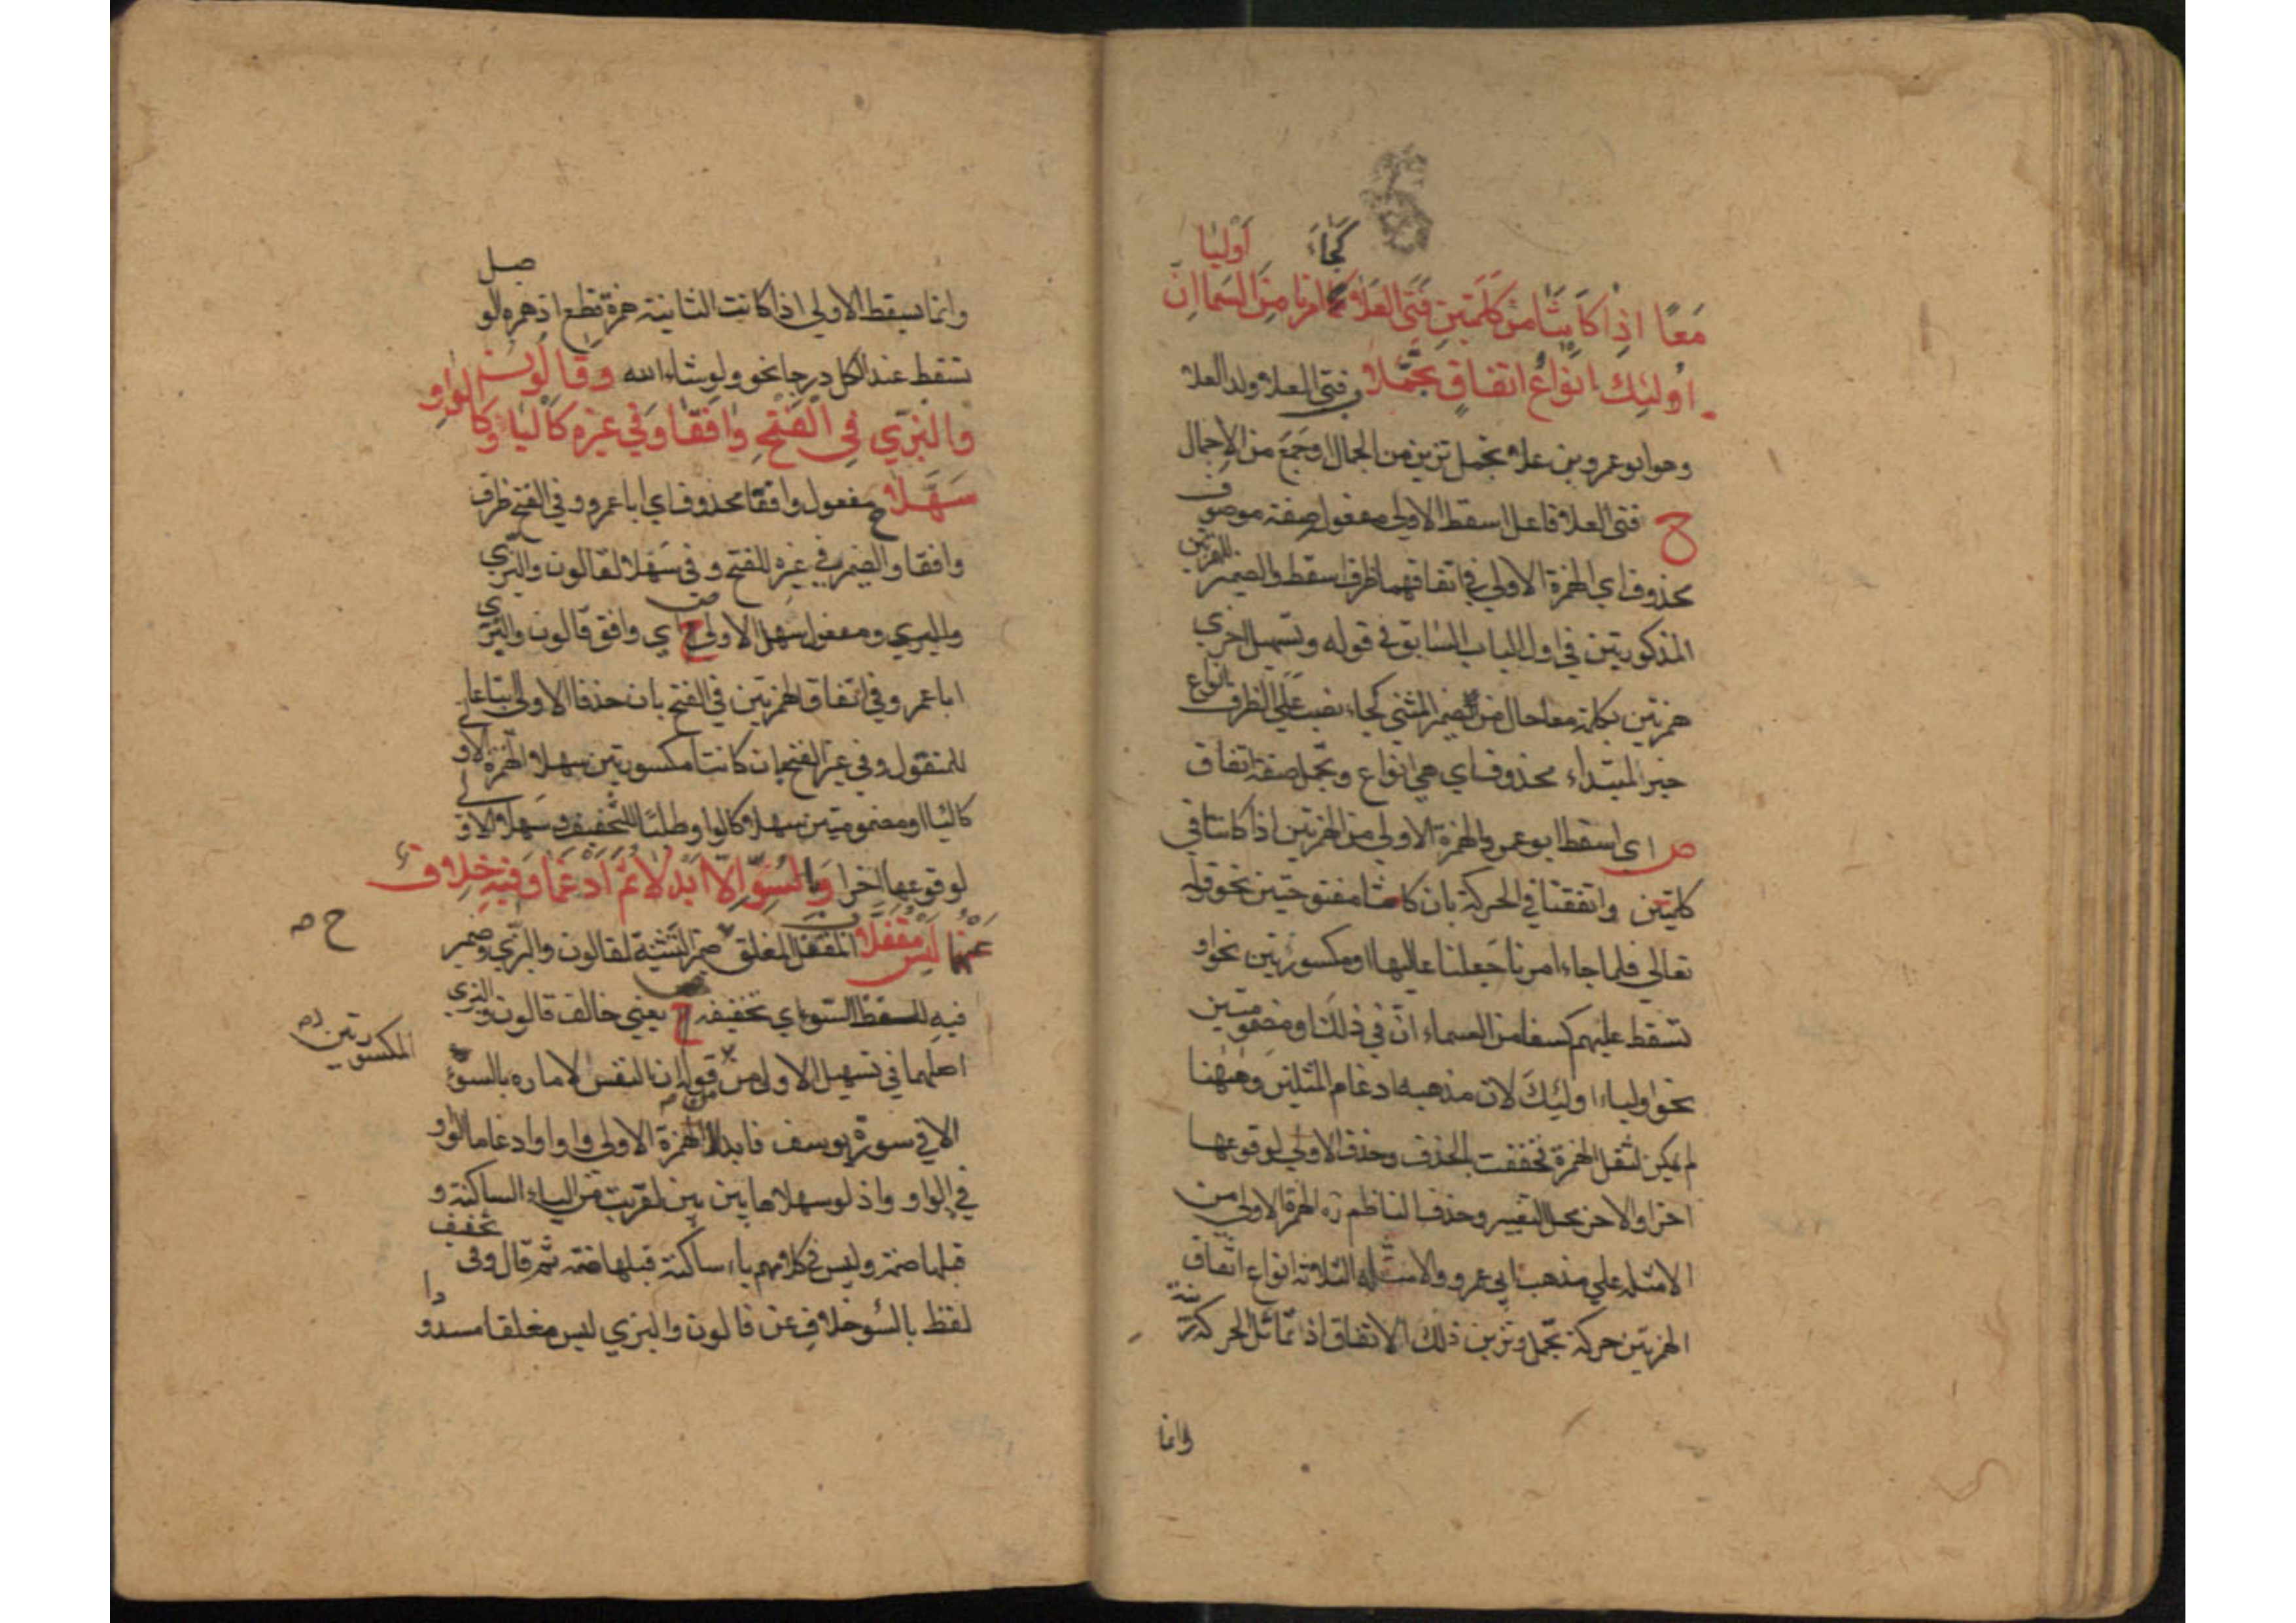 كجاء أوليا
معًا اذا كانتا من كلمتين فتى العلا كجا امرنا من السما ان
اولئك انواع اتفاق تجملا فتى العلا ولد العلا
وهو ابو عمرو بن علاء تجمل تزين من الجمال او جمع من الاجمال
ح فتى العلا فاعل اسقط الاولى مفعول صفة موصوف
محذوف اي الهمزة الاولى في اتفاقهما ظرف اسقط والضمير للهمزتين
المذكورتين في اول الباب السابق في قوله وتسهيل اخرى
همزتين بكلمة معا حال من ضمير المثنى كجاء نصب على الظرف انواع
خبر المبتداء محذوف اي هي انواع وتجمل صفة اتفاق
ص اي اسقط ابو عمرو الهمزة الاولى من الهمزتين اذا كانتا في
كلمتين واتفقتا في الحركة بان كانتا مفتوحتين نحو قوله
تعالى فلما جاء امرنا جعلنا عاليها او مكسورتين نحو او
تسقط عليهم كسفا من السماء ان في ذلك او مضمومتين
نحو اولياء اولئك لان مذهبه ادغام المثلين وههنا
لم يكن لثقل الهمزة فخففت بالحذف وحذف الاولى لوقوعها
اخرا والاخر محل التغيير وحذف الناظم ره الهمزة الاولى من
الامثله على مذهب ابي عمرو والامثله الثلاثة انواع اتفاق
الهمزتين حركة تجمل وتزين ذلك الاتفاق اذا تماثل الحركة
وانما
وانما يسقط الاولى اذا كانت الثانية همزة قطع اذ همزه الوصل
تسقط عند الكل درجا نحو ولو شاء الله وقالون
والبزي في الفتح وافقا وفي غيره كاليا وكالواو
سهلا ح مفعول وافقا محذوف اي ابا عمرو وفي الفتح ظرف
وافقا والضمير في غيره للفتح وفي سهلا لقالون والبزي
والبزي ومفعول سهل الاولى اي وافق قالون والبزي
ابا عمرو في اتفاق الهمزتين في الفتح بان حذفا الاولى اتباعا
للمنقول وفي غير الفتح بان كانتا مكسورتين سهلا الهمزة الاولى
كاليا او مضمومتين سهلا كالواو طلبًا للتخفيف وسهلا الاولى
لوقوعها اخرا وبالسوّ الا ابدلا ثم ادغما وفيه خلاف
عنهما ليس مقفلا المقفل المغلق ضمير التثنية لقالون والبزي وضمير
ح ص
فيه للفظ السوء اي تخفيفه ح يعني خالف قالون والبزي
اصلهما في تسهيل الاولى من قوله ان النفس لامارة بالسوء
المكسورتين
الا في سورة يوسف فابدلا الهمزة الاولى واوا وادغاما الواو
في الواو واذ لو سهلاها بين بين لقربت من الياء الساكنة و
قبلها ضمة وليس في كلامهم ياء ساكنة قبلها ضمة ثم قال وفي تخفيف
لفظ بالسوء خلاف عن قالون والبزي ليس مغلقا مسدودا